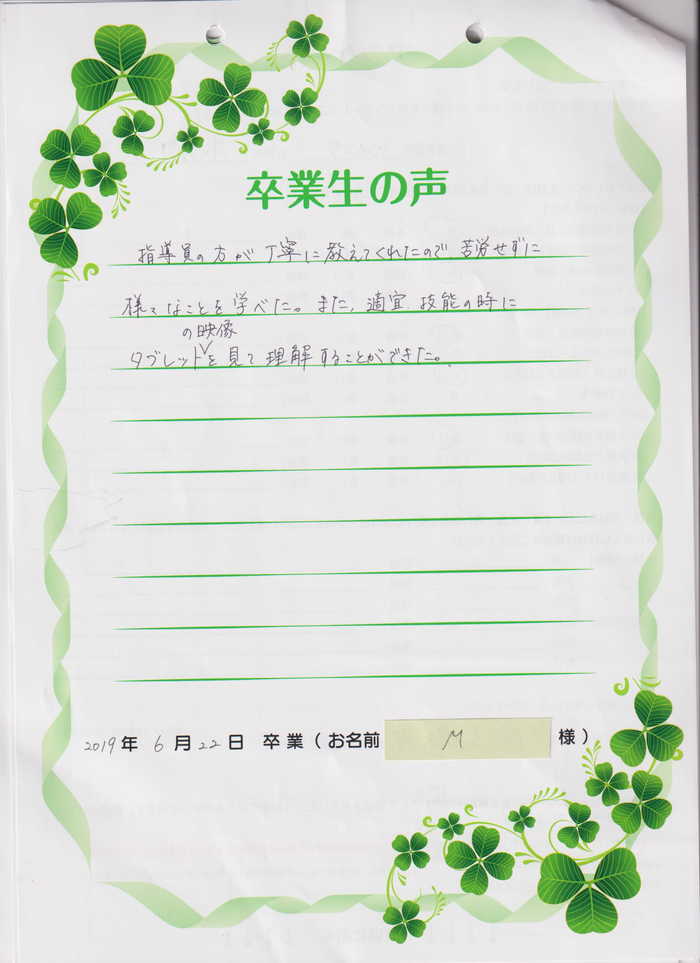 卒業生の声
指導員の方が丁寧に教えてくれたので、苦労せずに
様々なことを学べた。また、適宜、技能の時に
の映像
タブレットを見て理解することができた。
2019年 6月22日 卒業(お名前 M 様)